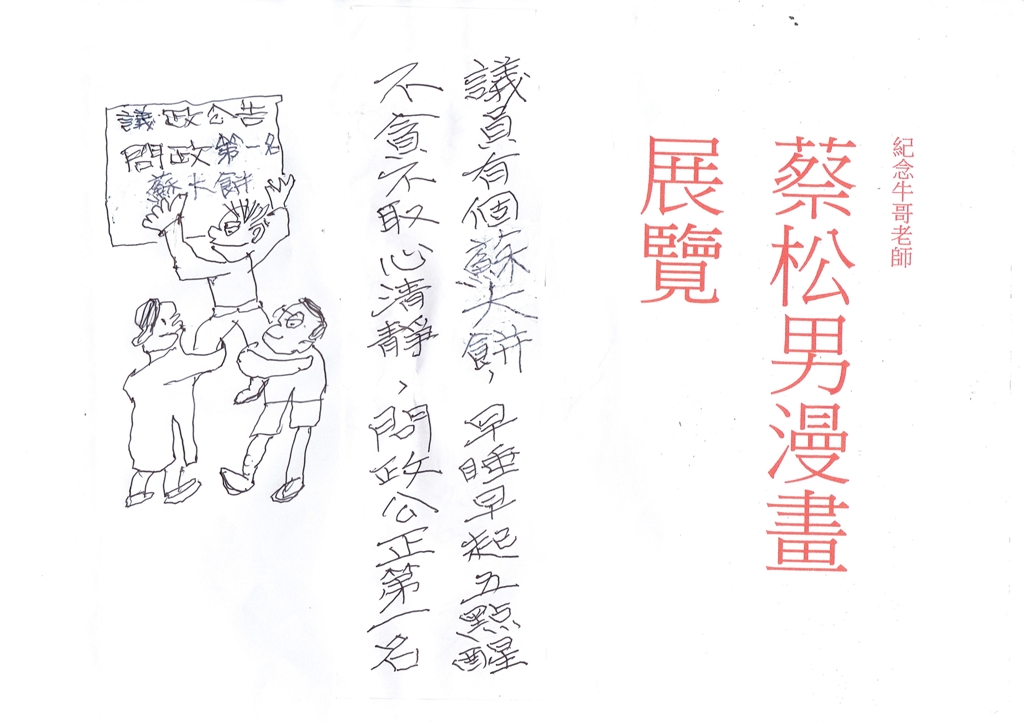 紀念牛哥老師
蔡松男漫畫
展覽
議員有個蘇大餅，早睡早起五點醒
不貪不取心清靜，問政公正第一名
議政公告
問政第一名
蘇大餅